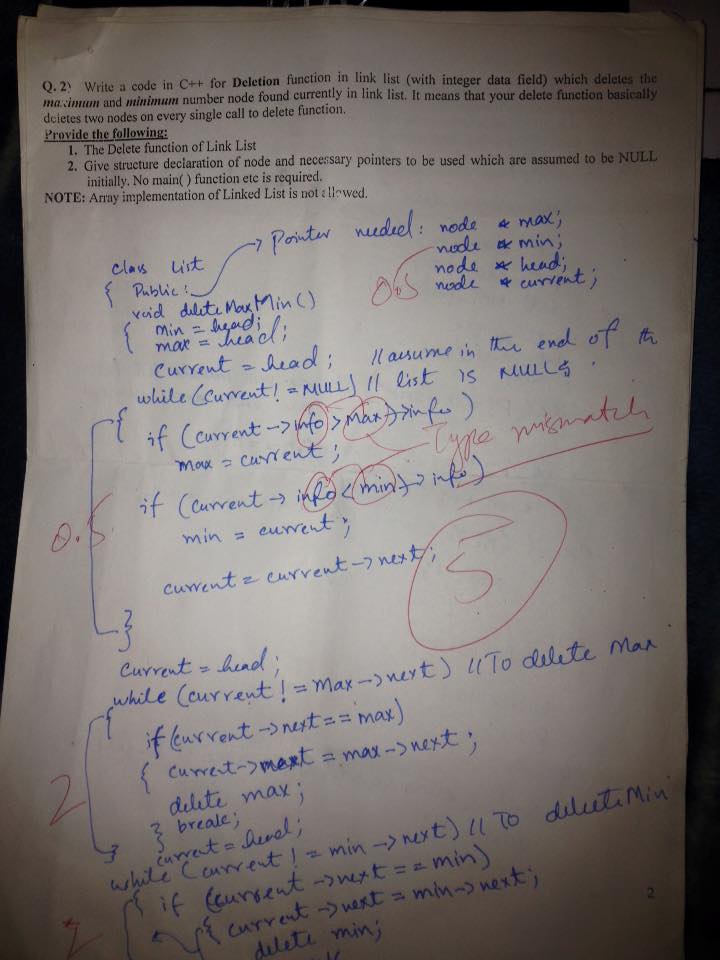 Q. 2) Write a code in C++ for Deletion function in link list (with integer data field) which deletes the
maximum and minimum number node found currently in link list. It means that your delete function basically
deletes two nodes on every single call to delete function.
Provide the following:
1. The Delete function of Link List
2. Give structure declaration of node and necessary pointers to be used which are assumed to be NULL
initially. No main( ) function etc is required.
NOTE: Array implementation of Linked List is not allowed.
→ Pointer needed: node * max;
node * min;
node * head;
node * current;
0.5
class List
{ Public:
void deleteMaxMin()
{ min = head;
max = head;
current = head; // assume in the end of th
while (current != NULL) // list is NULL
{ if (current -> info > max -> info)
max = current;
Type mismatch
if (current -> info < min -> info)
min = current;
0.5
current = current -> next;
5
}
current = head;
while (current != max -> next) // To delete Max
{ if (current -> next == max)
{ current -> next = max -> next;
delete max;
2
break;
}
} current = head;
while (current != min -> next) // To delete Min
{ if (current -> next == min)
{ current -> next = min -> next;
2
delete min;
2